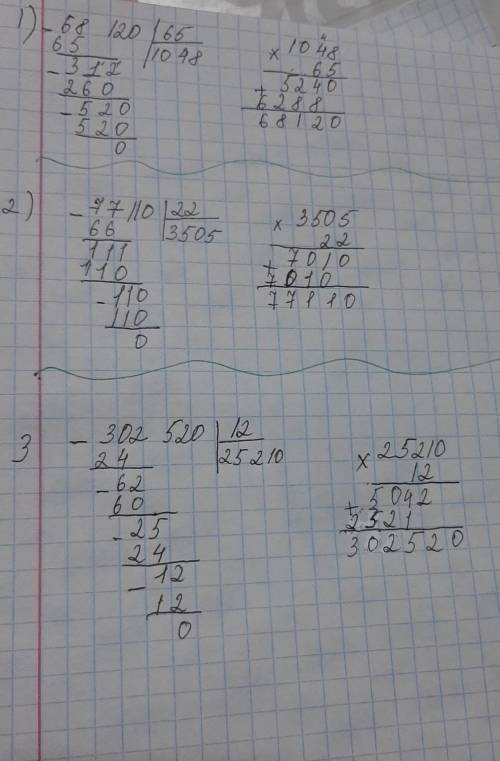 1) - 68 120 | 65
65 | 1048
- 312
260
- 520
520
0
× 1048
65
+ 5240
6288
68120
2) - 77110 | 22
66 | 3505
111
110
- 110
110
0
× 3505
22
+ 7010
7010
77110
3 - 302 520 | 12
24 | 25210
- 62
60
- 25
24
- 12
12
0
× 25210
12
+ 5042
2521
302520